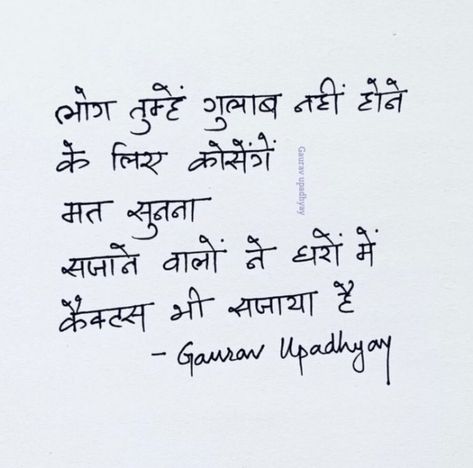 लोग तुम्हें गुलाब नहीं होने
के लिए कोसेंगें
मत सुनना
सजाने वालों ने घरों में
कैक्टस भी सजाया है
- Gaurav Upadhyay
Gaurav upadhyay